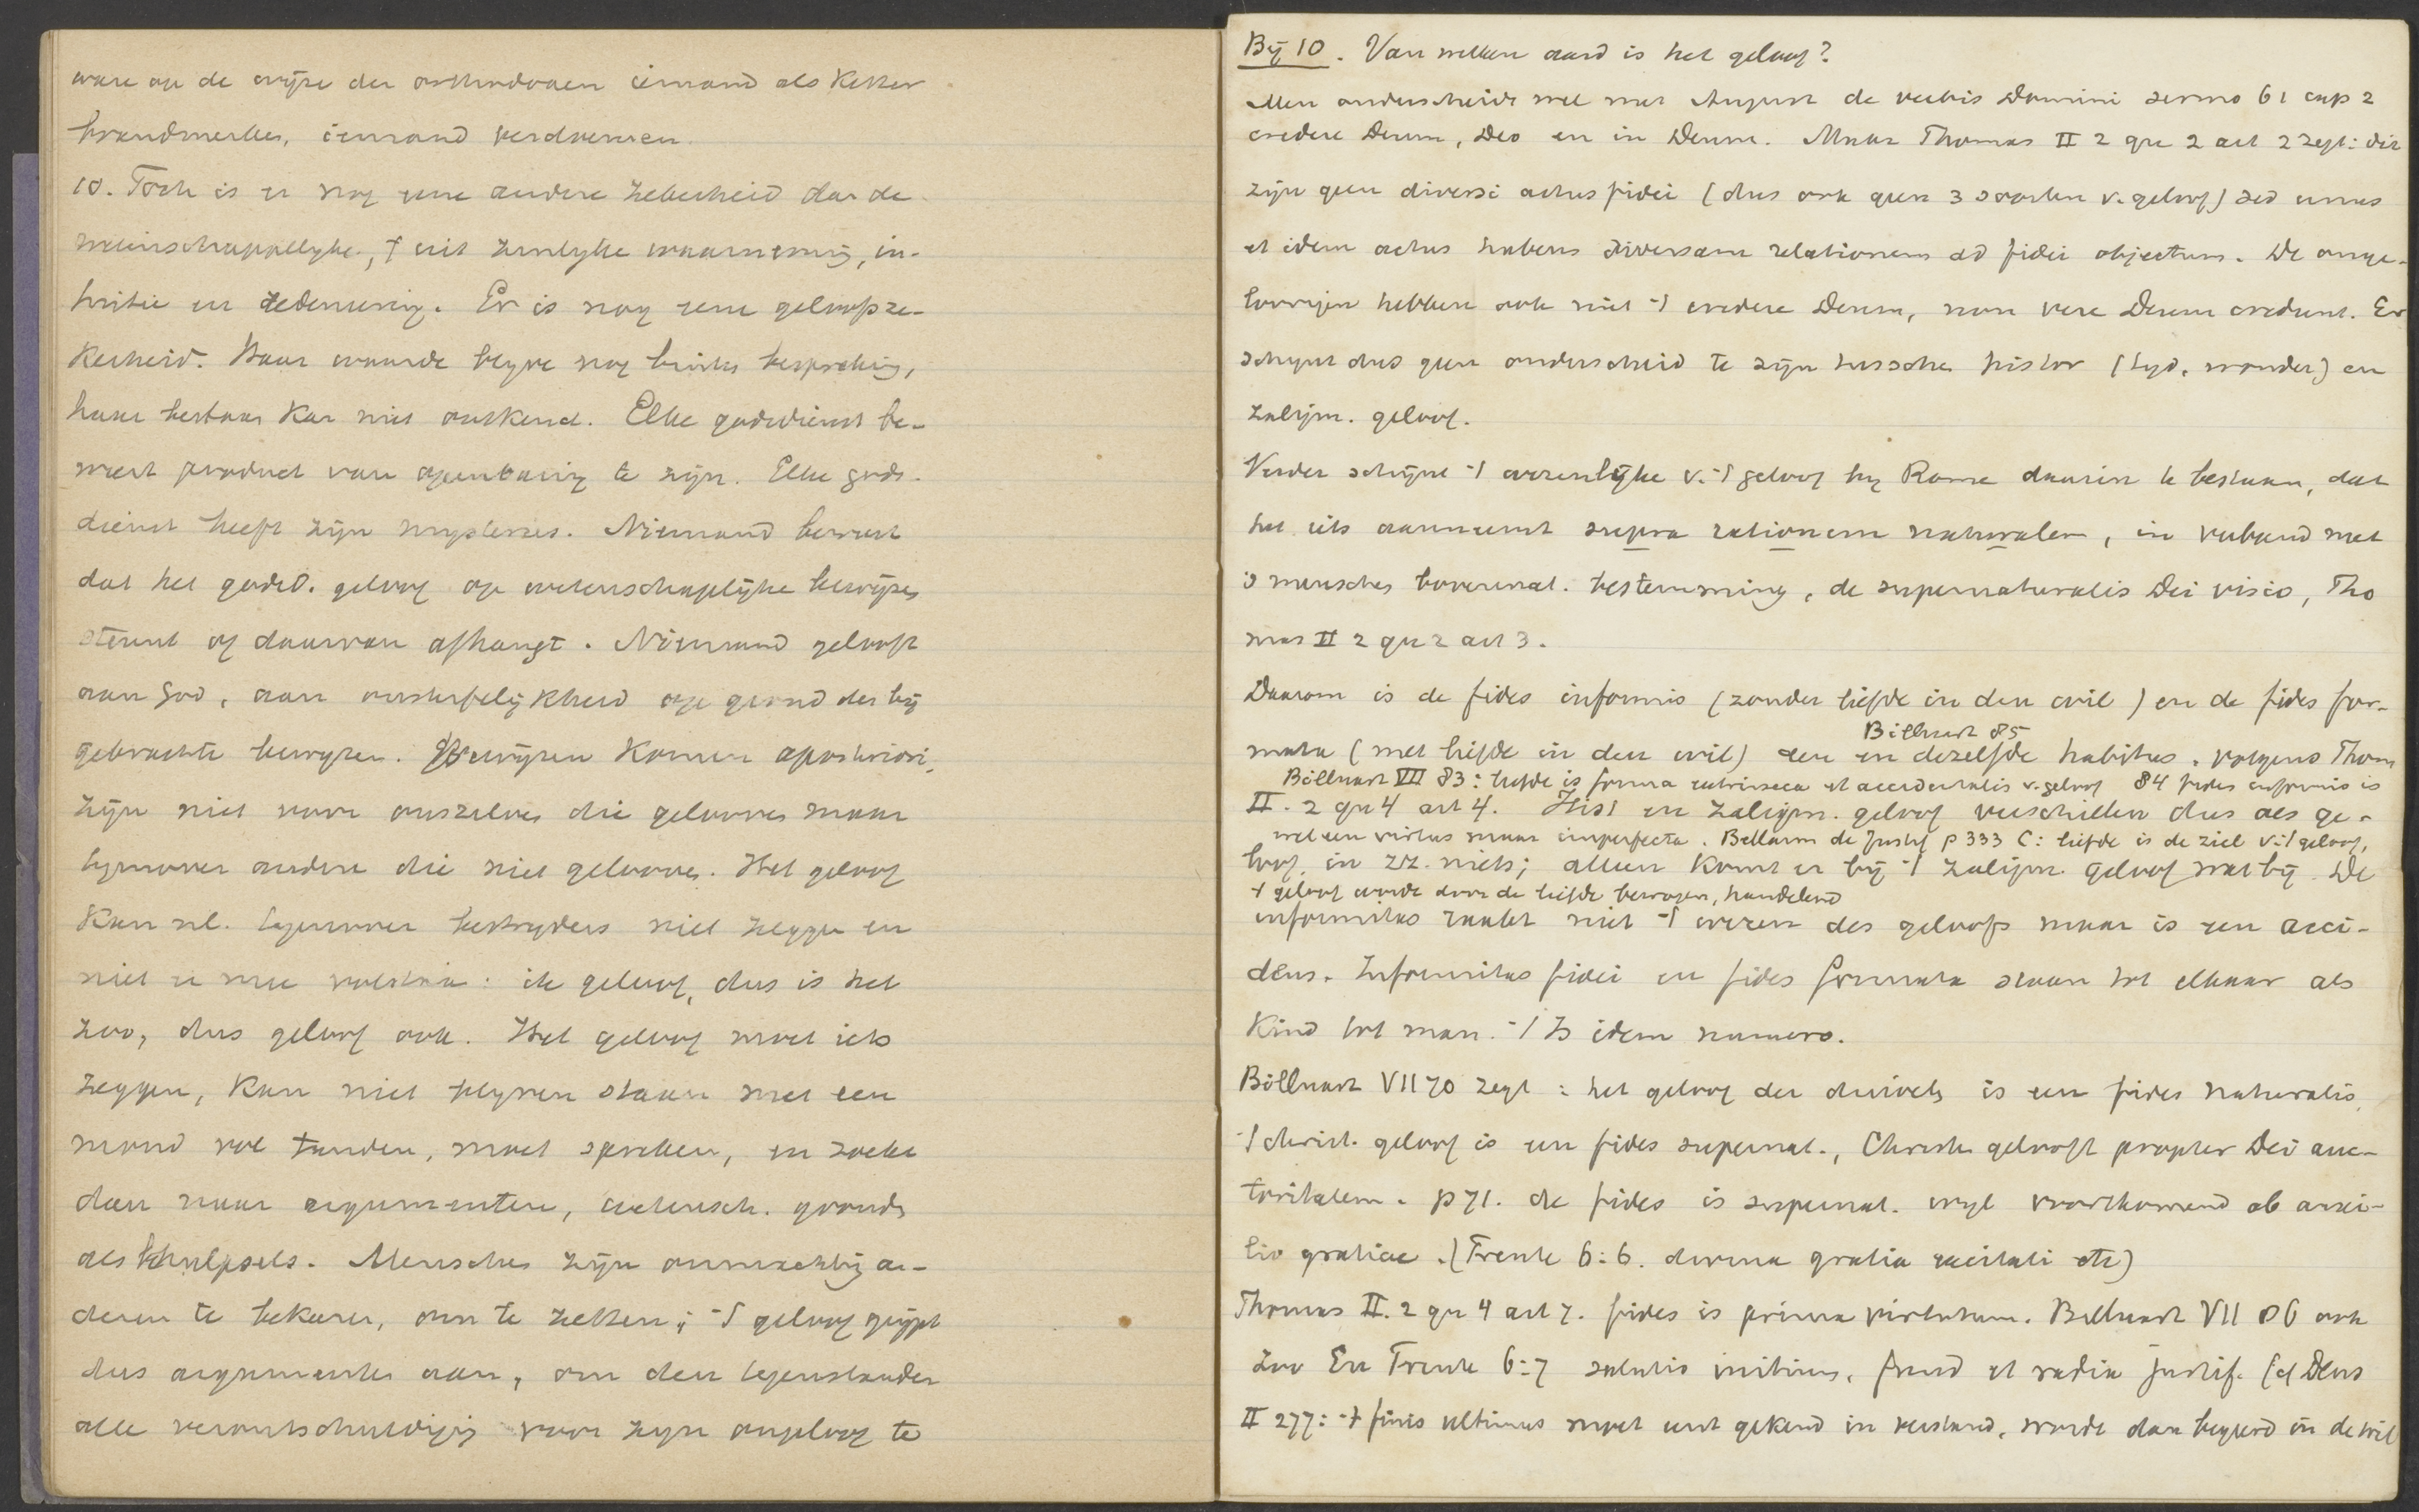 ware op de wijze der orthodoxen iemand als Ketter
brandmerken, iemand verdoemen.
10. Toch is er nog eene andere zekerheid dan de
wetenschappelyke, uit zinlyke waarneming, in-
tuitie en redeneering. Er is nog eene geloofsze-
kerheid. Haar waarde blyve nog buiten bespreking,
haar bestaan kan niet ontkend. Elke godsdienst be-
weert product van openbaring te zijn. Elke gods-
dienst heeft zijn mysteries. Niemand beweert
dat het godsd. geloof op wetenschaplijke bewijzen
steunt of daarvan afhangt. Niemand gelooft
aan God, aan onsterfelijkheid op grond der bij
gebrachte bewyzen. Bewijzen komen aposteriori,
zijn niet voor onszelven die gelooven maar
tegenover andere die niet gelooven. Het geloof
kan nl. tegenover bestryders niet zeggen en
niet er mee volstaan: ik geloof, dus is het
zoo, dus geloof ook. Het geloof moet iets
zeggen, kan niet blyven staan met een
mond vol tanden, moet spreken, en zoekt
dan naar argumenten, wetensch. gronden
als hulpsels. Menschen zijn onmachtig an-
deren te bekeeren, om te zetten; 't geloof grijpt
dus argumenten aan, om den tegenstander
alle verontschuldiging voor zijn ongeloof te
Bij 10. Van welken aard is het geloof?
Men onderscheidt wel met August de verbis Domini sermo 61 cap 2
credere Deum, Deo en in Deum. Maar Thomas II 2 qu 2 art 2 zegt: dit
zijn geen diversi actus fidei (dus ook geen 3 soorten v. geloof) sed unus
et idem actus habens diversam relationem ad fidei objectum. De onge-
loovigen hebben ook niet 't credere Deum, non vere Deum credunt. Er
schynt dus geen onderscheid te zijn tussche histor (tyd, wonder) en
zaligm. geloof.
Verder schijnt 't wezenlijke v. 't geloof by Rome daarin te bestaan, dat
het iets aanneemt supra rationem naturalem, in verband met
's menschen bovennat. bestemming, de supernaturalis Dei visio, Tho
mas II 2 qu 2 art 3.
Daarom is de fides informis (zonder liefde in den wil) en de fides for-
Billuart 85
mata (met liefde in den wil) een en dezelfde habitus, volgens Thom
Billuart VII 83: liefde is forma extrinseca et accidentalis v. geloof 84 fides informis is
II. 2 qu 4 art 4. Hist en zaligm. geloof verschillen dus als ge-
wel een virtus maar imperfecta. Bellarm de Justif p 333 C: liefde is de ziel v. 't geloof,
loof in zz. niets; alleen komt er bij 't zaligm. geloof wat bij. De
't geloof wordt door de liefde bewogen, handelend
informitas raakt niet 't wezen des geloofs maar is een acci-
dens. Informitas fidei en fides formata staan tot elkaar als
kind tot man. 't Is idem numero.
Billuart VII 70 zegt: het geloof der duivels is een fides naturalis,
't christ. geloof is een fides supernat., Christen gelooft propter Dei auc-
toritatem. p 71. de fides is supernat. wyl voortkomend ab auxi-
lio gratiae. (Trente 6:6. divina gratia excitati etc)
Thomas II. 2 qu 4 art 7. fides is prima virtutum. Billuart VII 86 ook
zoo En Trente 6:7 salutis initium, fund et radix justif. (cf Dens
II 277: 't finis ultimus moet eerst gekend in verstand, wordt dan begeerd in de wil